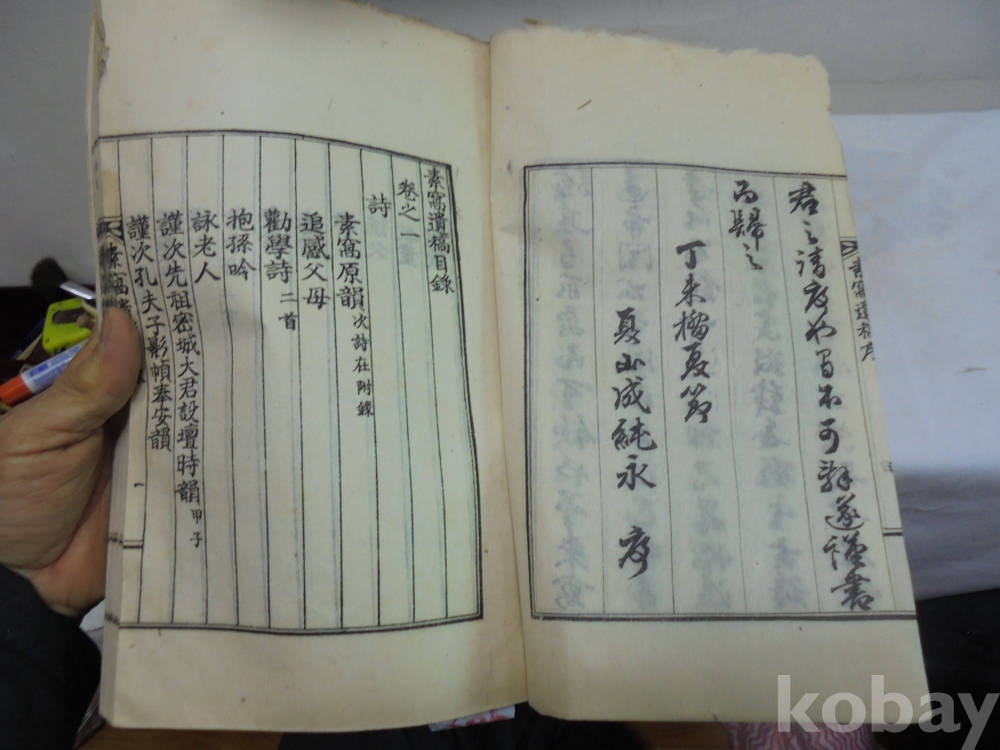 君之請序如蜀不可辭遂謹書
而歸之
丁未榴夏節
夏山成純永 序
素窩遺稿目錄
卷之一
詩
素窩原韻 次詩在附錄
追感父母
勸學詩 二首
抱孫吟
詠老人
謹次先祖密城大君設壇時韻 甲子
謹次孔夫子影幀奉安韻
一
kobay